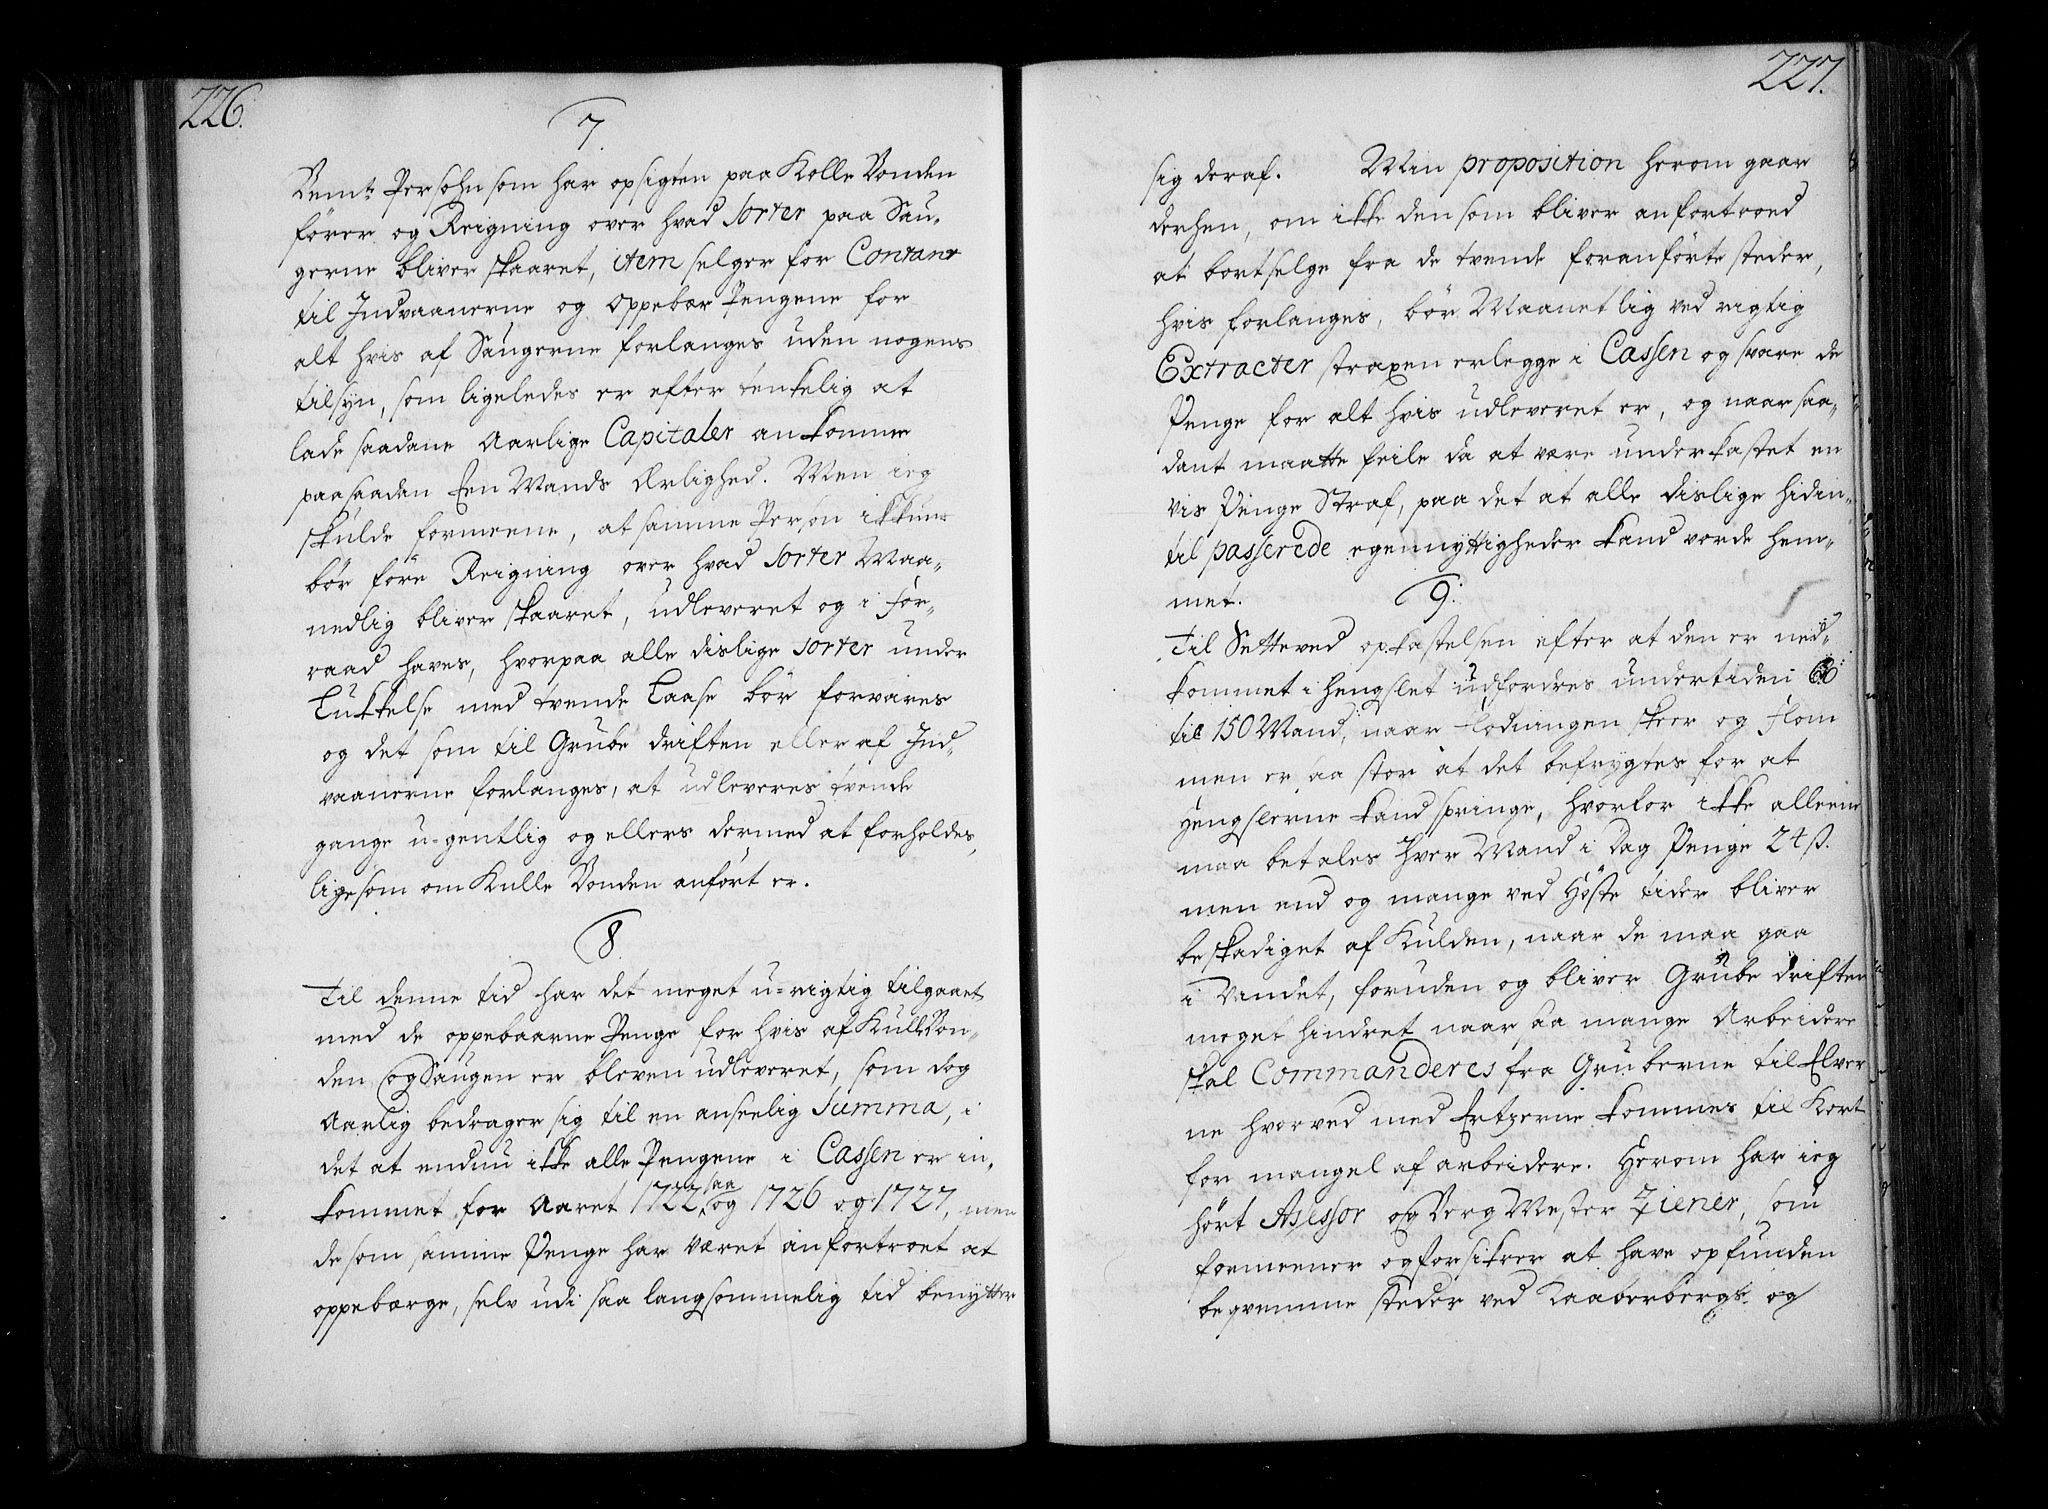 226.
7.
Bemte Persohn som har opsigten paa Kolle Bonden
fører og Reigning over hvad Sorter paa Sau-
gerne bliver skaaret, item selger for Contant
til Indvaanerne og oppebær Pengene for
alt hvis af Saugerne forlanges uden nogens
tilsyn, som ligeledes er eftertenkelig at
lade saadane Aarlige Capitaler ankomme
paa saaden Een Mands Ærlighed. Men ieg
skulde formeene, at samme Person ikkuns
bør føre Reigning over hvad Sorter Maa-
nedlig bliver skaaret, udleveret og i For-
raad haves, hvorpaa alle dislige Sorter under
Lukkelse med tvende Laase bør forvares
og det som til Grube driften eller af Ind-
vaanerne forlanges, at udleveres tvende
gange u-gentlig og ellers dermed at forholdes,
ligesom om Kulle Bonden anført er.
8.
Til denne tid har det meget u-rigtig tilgaaet
med de oppebaarne Penge for hvis af Kulle Bon-
den og Saugen er bleven udleveret, som dog
Aarlig bedrager sig til en anseelig Summa, i
det at endnu ikke alle Pengene i Cassen er in-
kommet for Aaret 1722, saa og 1726 og 1727, men
de som samme Penge har været anfortroet at
oppebærge, selv udi saa langsommelig tid benytter
227.
sig deraf. Min proposition herom gaar
derhen, om ikke den som bliver anfortroed
at bortselge fra de tvende foranførte steder,
hvis forlanges, bør Maanetlig ved rigtig
Extracter straxen erlegge i Cassen og svare de
Penge for alt hvis udleveret er, og naar saa-
dant maatte feile da at være underkastet en
vis Penge Straf, paa det at alle dislige hidin-
til passerede egennyttigheder kand vorde hem-
met.
9.
Til Setteved opkastelsen efter at den er ned-
kommet i hengslet udfordres undertiden
til 150 Mand, naar flodningen skeer og flom
men er saa stor at det befrygtes for at
Hengslerne kand springe, hvorfor ikke alleene
maa betales hver Mand i Dag Penge 24 ß.
men end og mange ved Høste tider bliver
beskadiget af Kulden, naar de maa gaa
i Vandet, foruden og bliver Grube driften
meget hindret naar saa mange Arbeidere
skal Commanderes fra Gruberne til Elver
ne hvorved med Ertzerne kommes til kort
for mangel af arbeidere. Herom har ieg
hørt Assessor og Berg Mester Ziener, som
formeener og forsikrer at have opfunden
beqvemme steder ved Kaaberbergs og